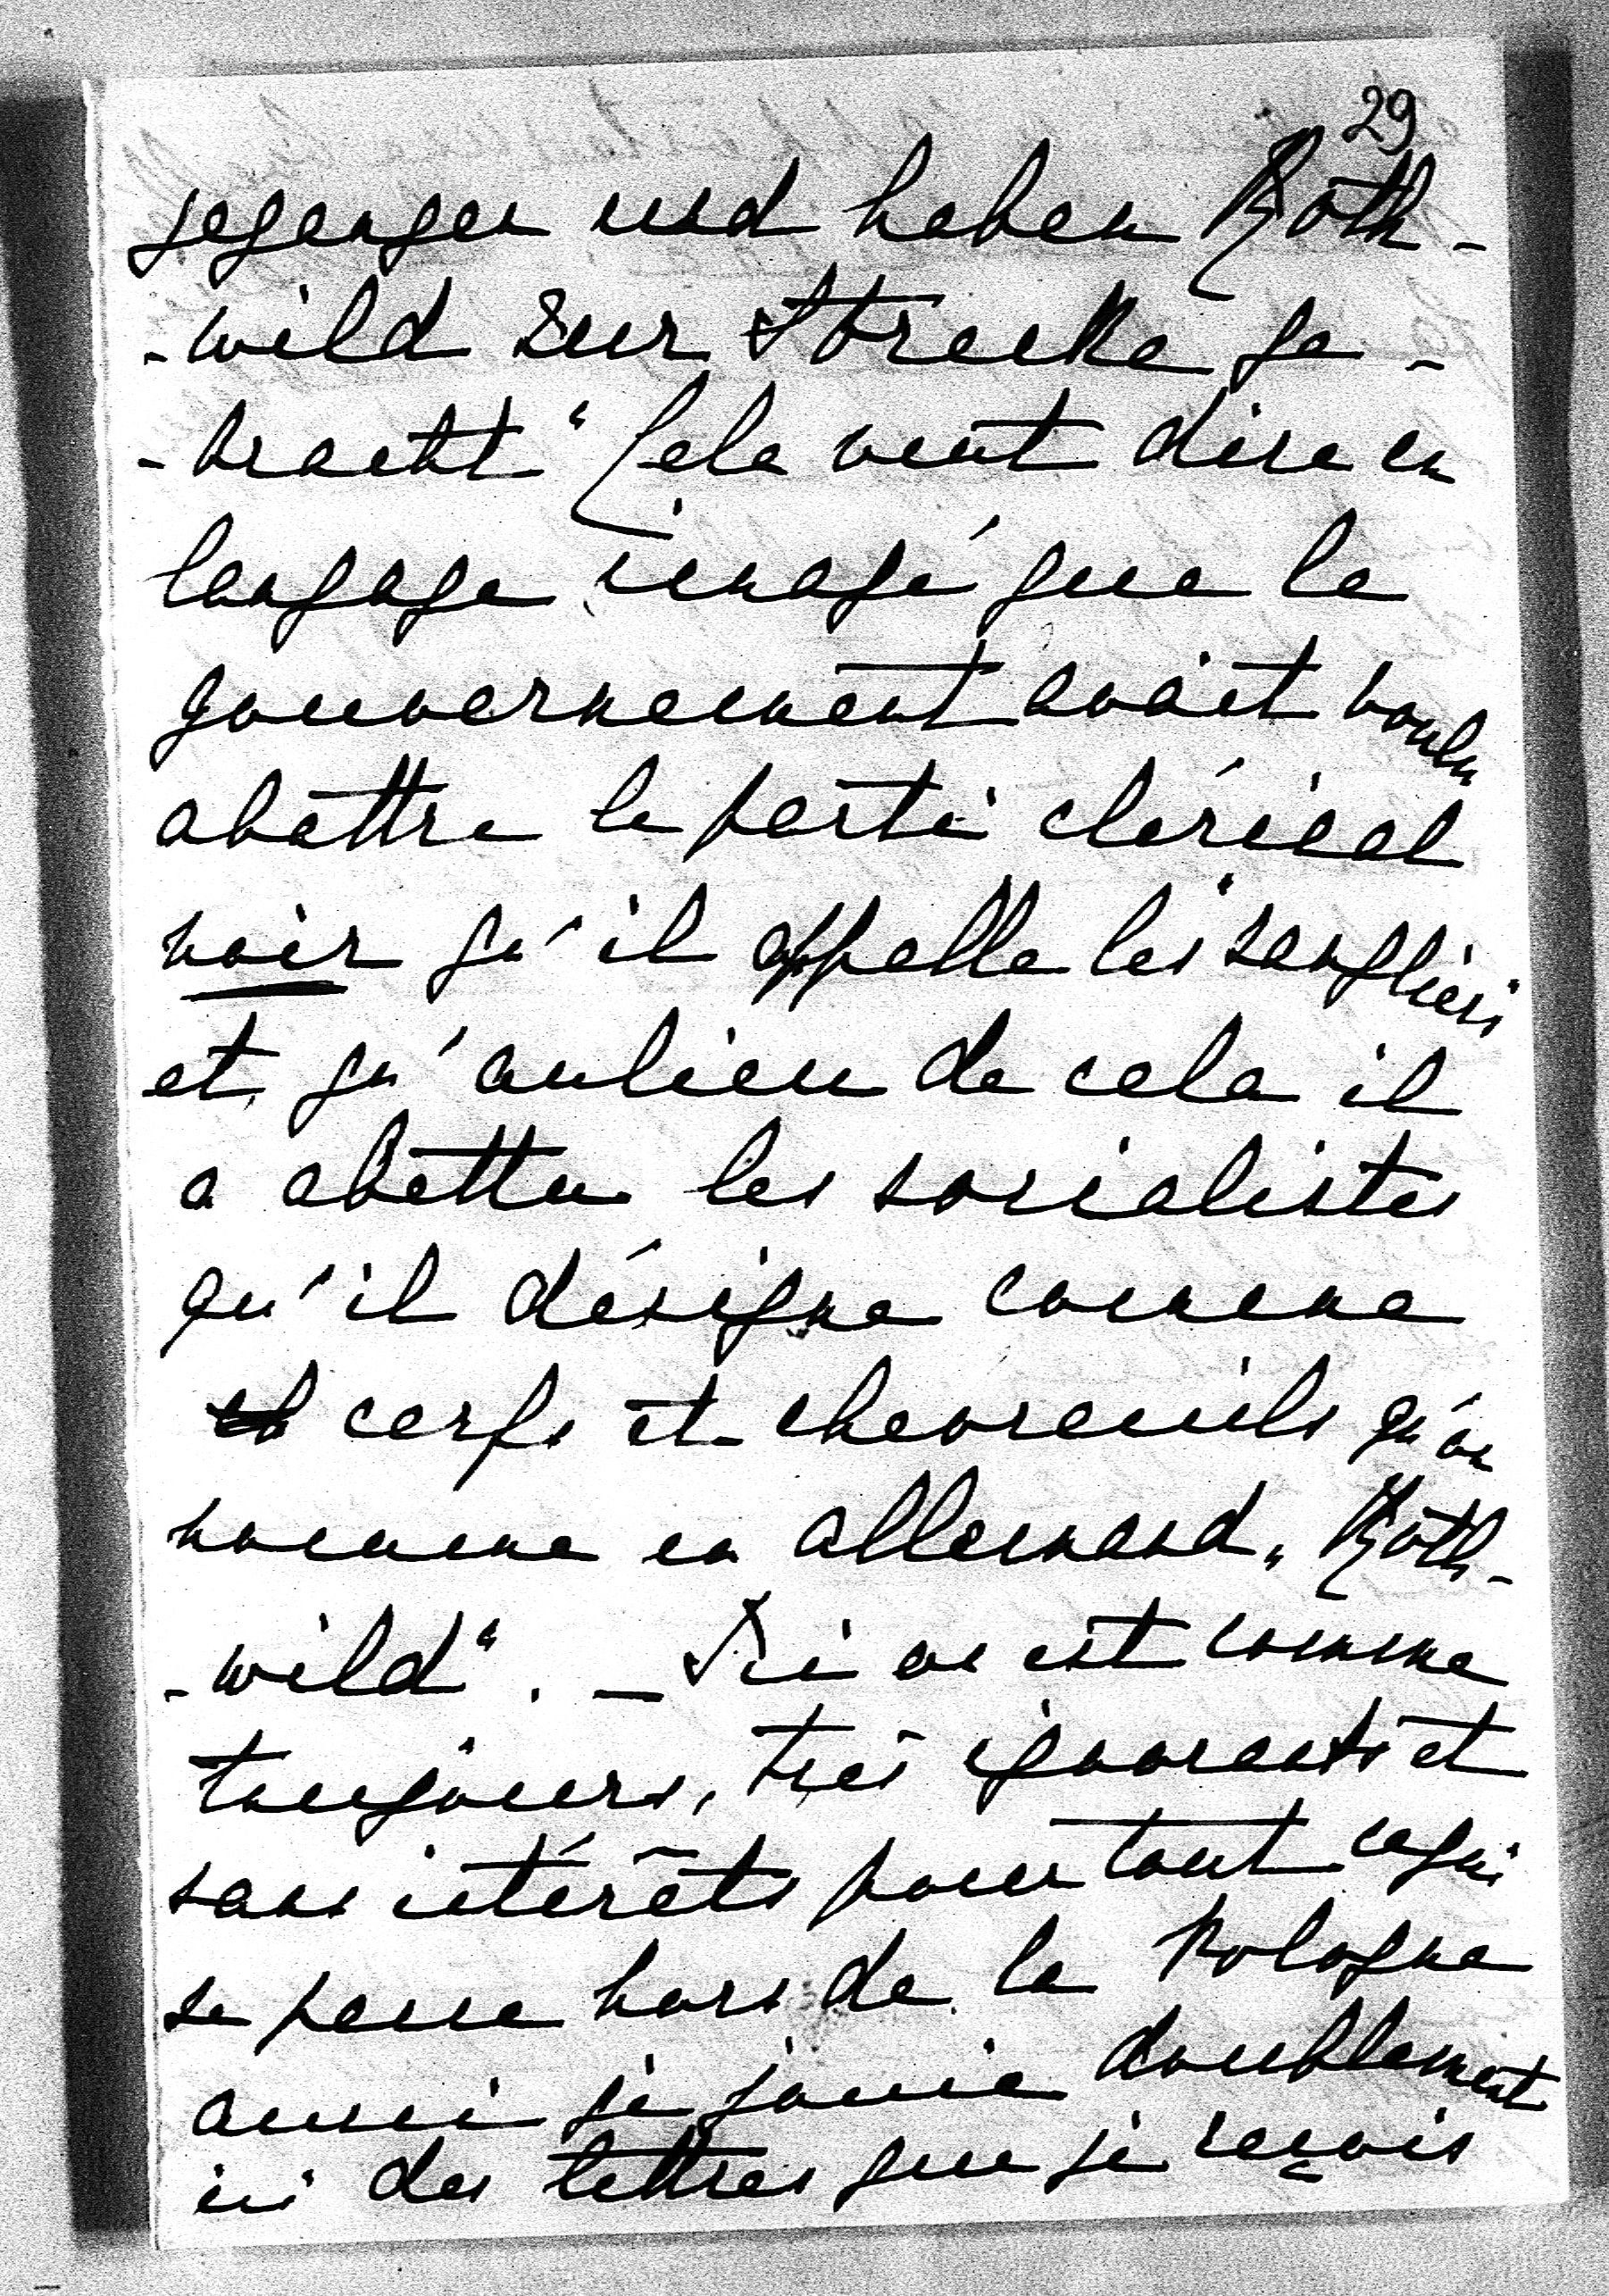 29
gegangen und haben Roth-
-wild zur Strecke ge-
-bracht" Cela veut dire en
langage imagé que le
gouvernement avait voulu
abattre le parti clérical
noir qu'il appelle les sangliers
et qu'aulieu de cela il
a abattu les socialistes
qu'il désigne comme
cerfs et chevreuils qu'on
nomme en allemand „Roth-
-wild". — Ici on est comme
toujours, très ignorants et
sans intérêts pour tout ce qui
se passe hors de la Pologne
aussi je jouie doublement
ici des lettres que je reçois